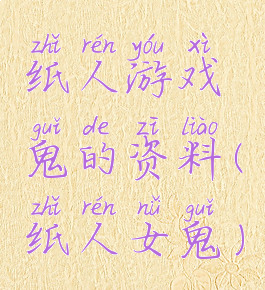 zhǐ rén yóu xì
纸人游戏
guǐ de zī liào
鬼的资料(
zhǐ rén nǚ guǐ
纸人女鬼)